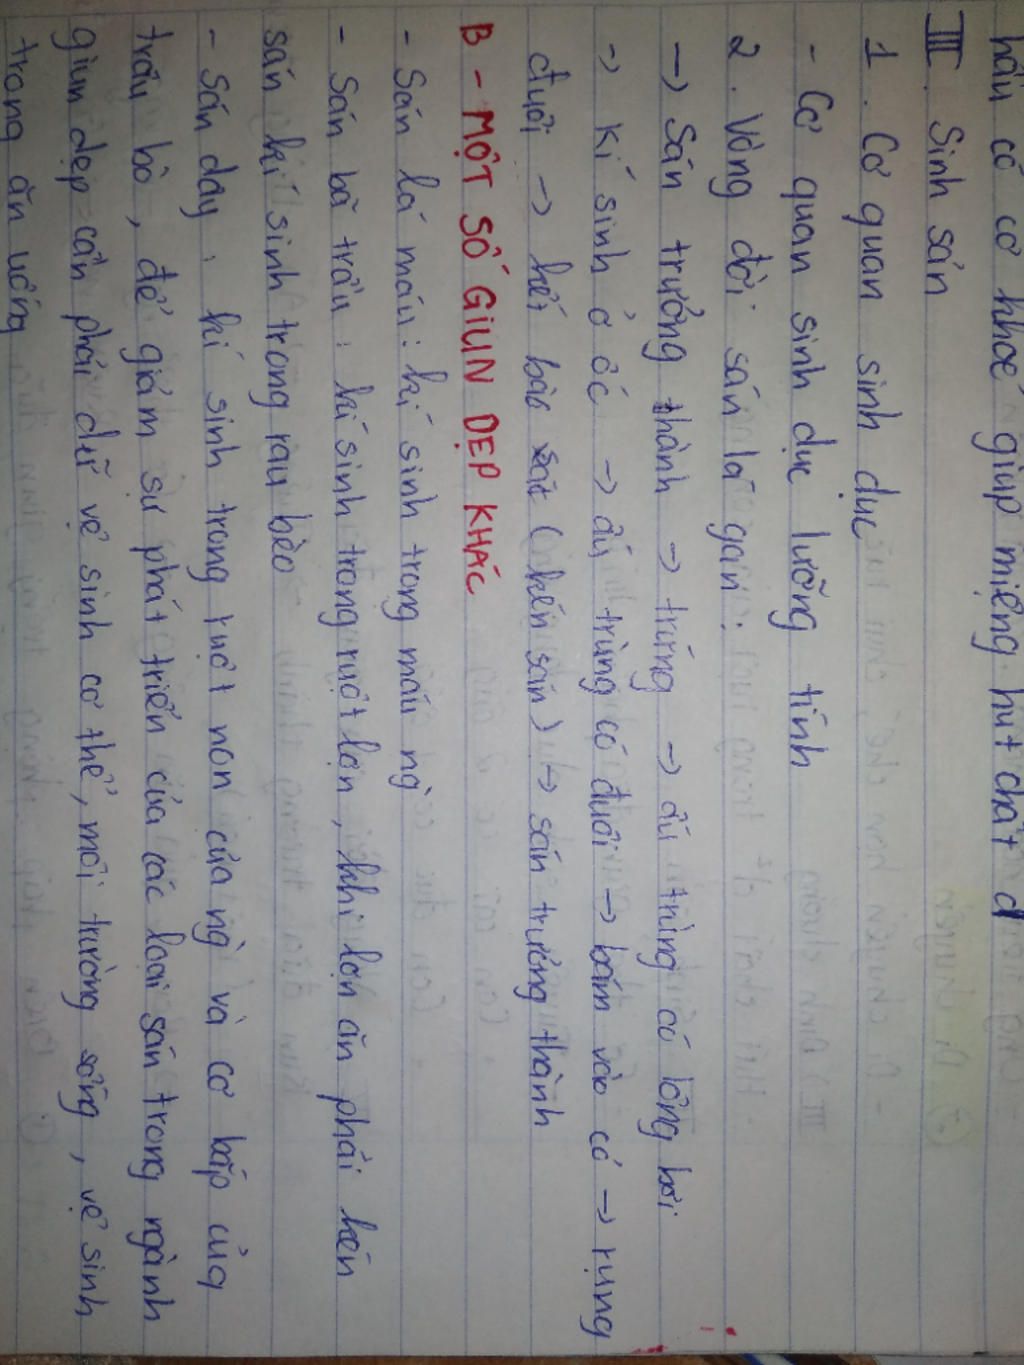 hầu có cơ khoẻ giúp miệng hút chất d
III. Sinh sản
1. Cơ quan sinh dục
- Cơ quan sinh dục lưỡng tính
2. Vòng đời sán lá gan:
→ Sán trưởng thành → trứng → ấu trùng có lông bơi
→ Kí sinh ở ốc → ấu trùng có đuôi → bám vào cỏ → rụng
đuôi → kết bào (kén sán) → sán trưởng thành
B - MỘT SỐ GIUN DẸP KHÁC
- Sán lá máu: kí sinh trong máu ng
- Sán bã trầu: kí sinh trong ruột lợn, khi lợn ăn phải kén
sán kí sinh trong rau bèo
- Sán dây: kí sinh trong ruột non của ng và cơ bắp của
trâu bò, để giảm sự phát triển của các loại sán trong ngành
giun dẹp cần phải dữ vệ sinh cơ thể, môi trường sống, vệ sinh
trong ăn uống